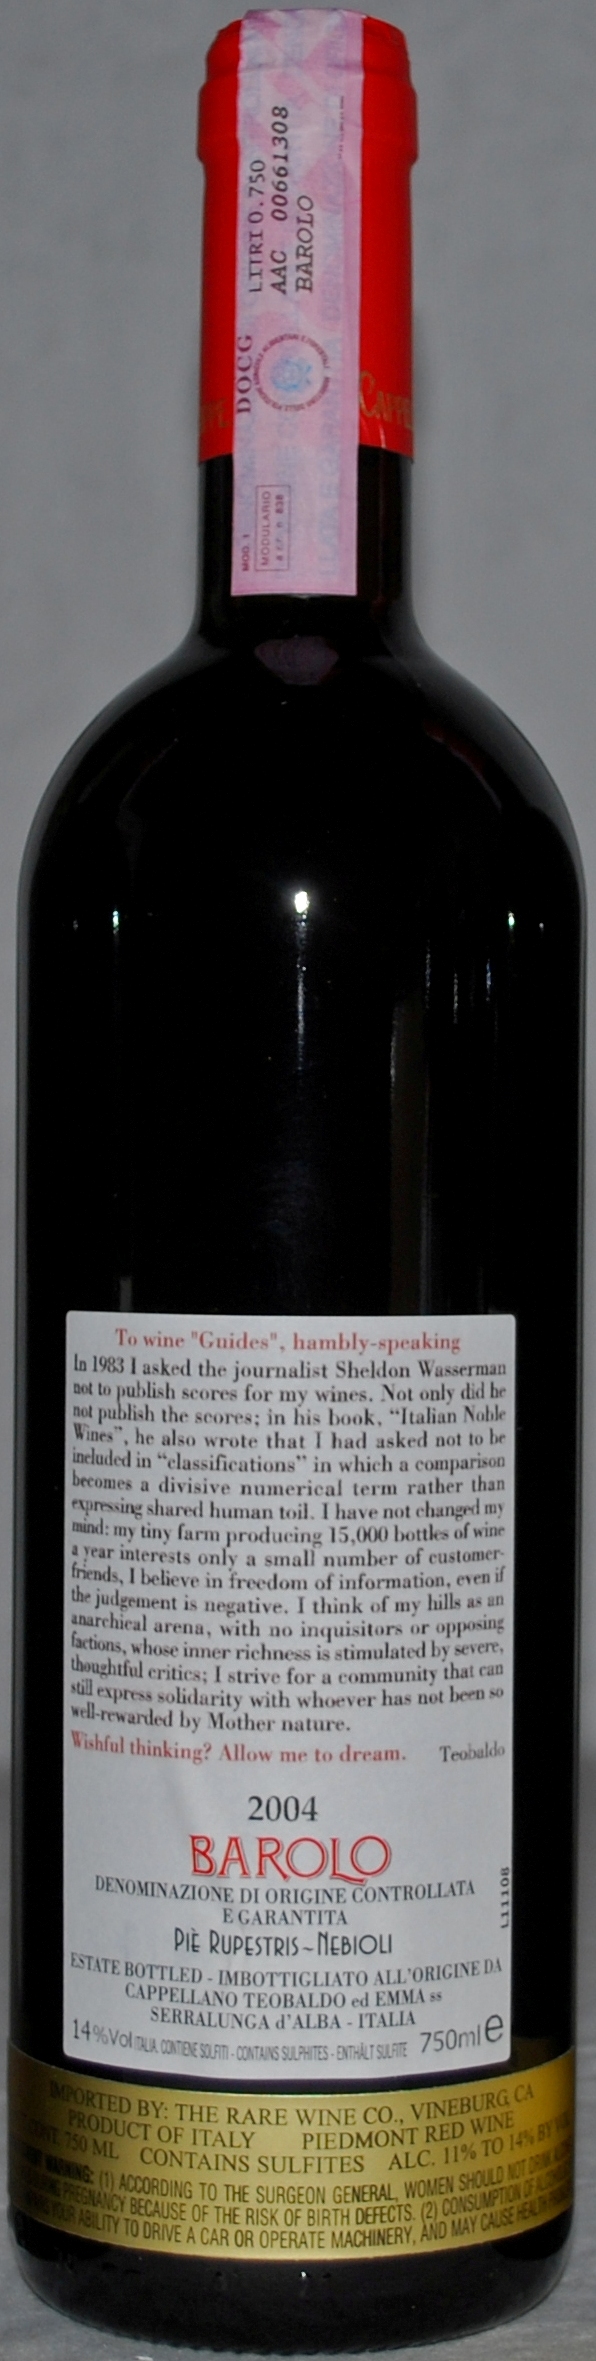 LITRI 0.750
AAC 00661308
BAROLO
DOCG
MOD. 1
MODULARIO
CAPPE
To wine "Guides", hambly-speaking
In 1983 I asked the journalist Sheldon Wasserman
not to publish scores for my wines. Not only did he
not publish the scores; in his book, “Italian Noble
Wines”, he also wrote that I had asked not to be
included in “classifications” in which a comparison
becomes a divisive numerical term rather than
expressing shared human toil. I have not changed my
mind: my tiny farm producing 15,000 bottles of wine
a year interests only a small number of customer-
friends, I believe in freedom of information, even if
the judgement is negative. I think of my hills as an
anarchical arena, with no inquisitors or opposing
factions, whose inner richness is stimulated by severe,
thoughtful critics; I strive for a community that can
still express solidarity with whoever has not been so
well-rewarded by Mother nature.
Wishful thinking? Allow me to dream. Teobaldo
2004
BAROLO
DENOMINAZIONE DI ORIGINE CONTROLLATA
E GARANTITA
PIÈ RUPESTRIS ~ NEBIOLI
L11108
ESTATE BOTTLED - IMBOTTIGLIATO ALL'ORIGINE DA
CAPPELLANO TEOBALDO ed EMMA ss
SERRALUNGA d'ALBA - ITALIA
14%Vol ITALIA. CONTIENE SOLFITI - CONTAINS SULPHITES - ENTHÄLT SULFITE 750ml e
IMPORTED BY: THE RARE WINE CO., VINEBURG, CA
PRODUCT OF ITALY PIEDMONT RED WINE
CONT. 750 ML CONTAINS SULFITES ALC. 11% TO 14% BY
WARNING: (1) ACCORDING TO THE SURGEON GENERAL, WOMEN SHOULD NOT DRINK
PREGNANCY BECAUSE OF THE RISK OF BIRTH DEFECTS. (2) CONSUMPTION OF
YOUR ABILITY TO DRIVE A CAR OR OPERATE MACHINERY, AND MAY CAUSE HEALTH